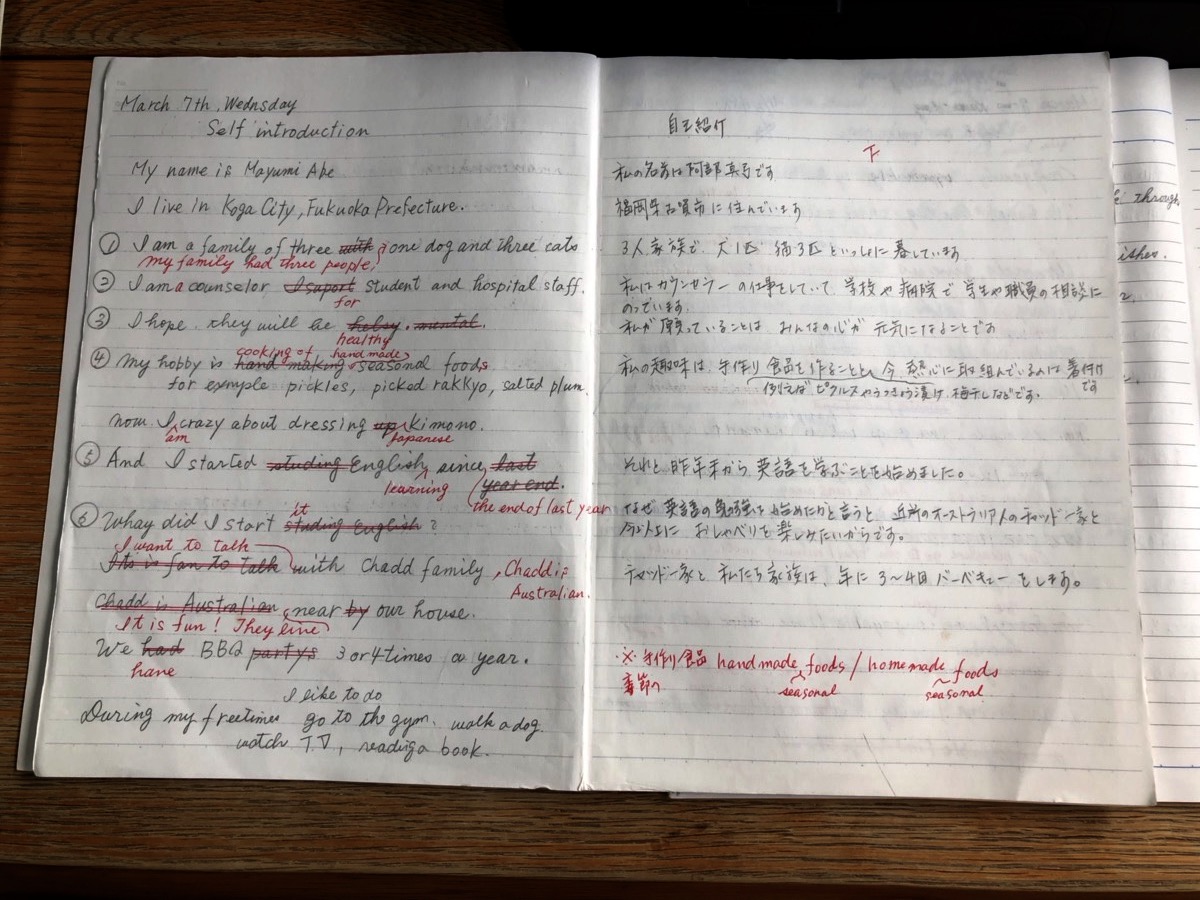 March 7th, Wednsday
Self introduction
My name is Mayumi Abe
I live in Koga City, Fukuoka Prefecture.
① I am a family of three with one dog and three cats
my family had three people,
② I am a counselor I saport student and hospital staff.
for
③ I hope they will be helsy. mental.
healthy
cooking of handmade
④ My hobby is hand making seasonal foods
for exmple pickles, picked rakkyo, salted plum
now I crazy about dressing up Kimono.
am Japanese
⑤ And I started studing English since last
learning year end.
the end of last year
it
⑥ Whay did I start studing English?
I want to talk
Its is fan to talk with Chadd family, Chadd is
Australian.
Chadd is Australian near by our house.
It is fun! They live
We had BBQ partys 3 or 4 times a year.
have
I like to do
During my freetimes go to the gym. walk a dog.
watch T.V, readig a book.
自己紹介
下
私の名前は阿部真弓です
福岡県古賀市に住んでいます
3人家族で、犬1匹 猫3匹といっしょに暮しています
私はカウンセラーの仕事をしていて、学校や病院で学生や職員の相談に
のっています。
私が願っていることは みんなの心が 元気になることです
私の趣味は、手作り食品を作ることと、今、熱心に取組んでいるのは着付け
です
例えばピクルスやらっきょう漬け、梅干しなどです。
それと昨年末から英語を学ぶことを始めました。
なぜ英語の勉強を始めたかと言うと、近所のオーストラリア人のチャッド一家と
今以上に おしゃべりを楽しみたいからです。
チャッド一家と私たち家族は、年に3～4回バーベキューをします。
※手作り食品 handmade foods / homemade foods
季節の seasonal seasonal
through
ishes.